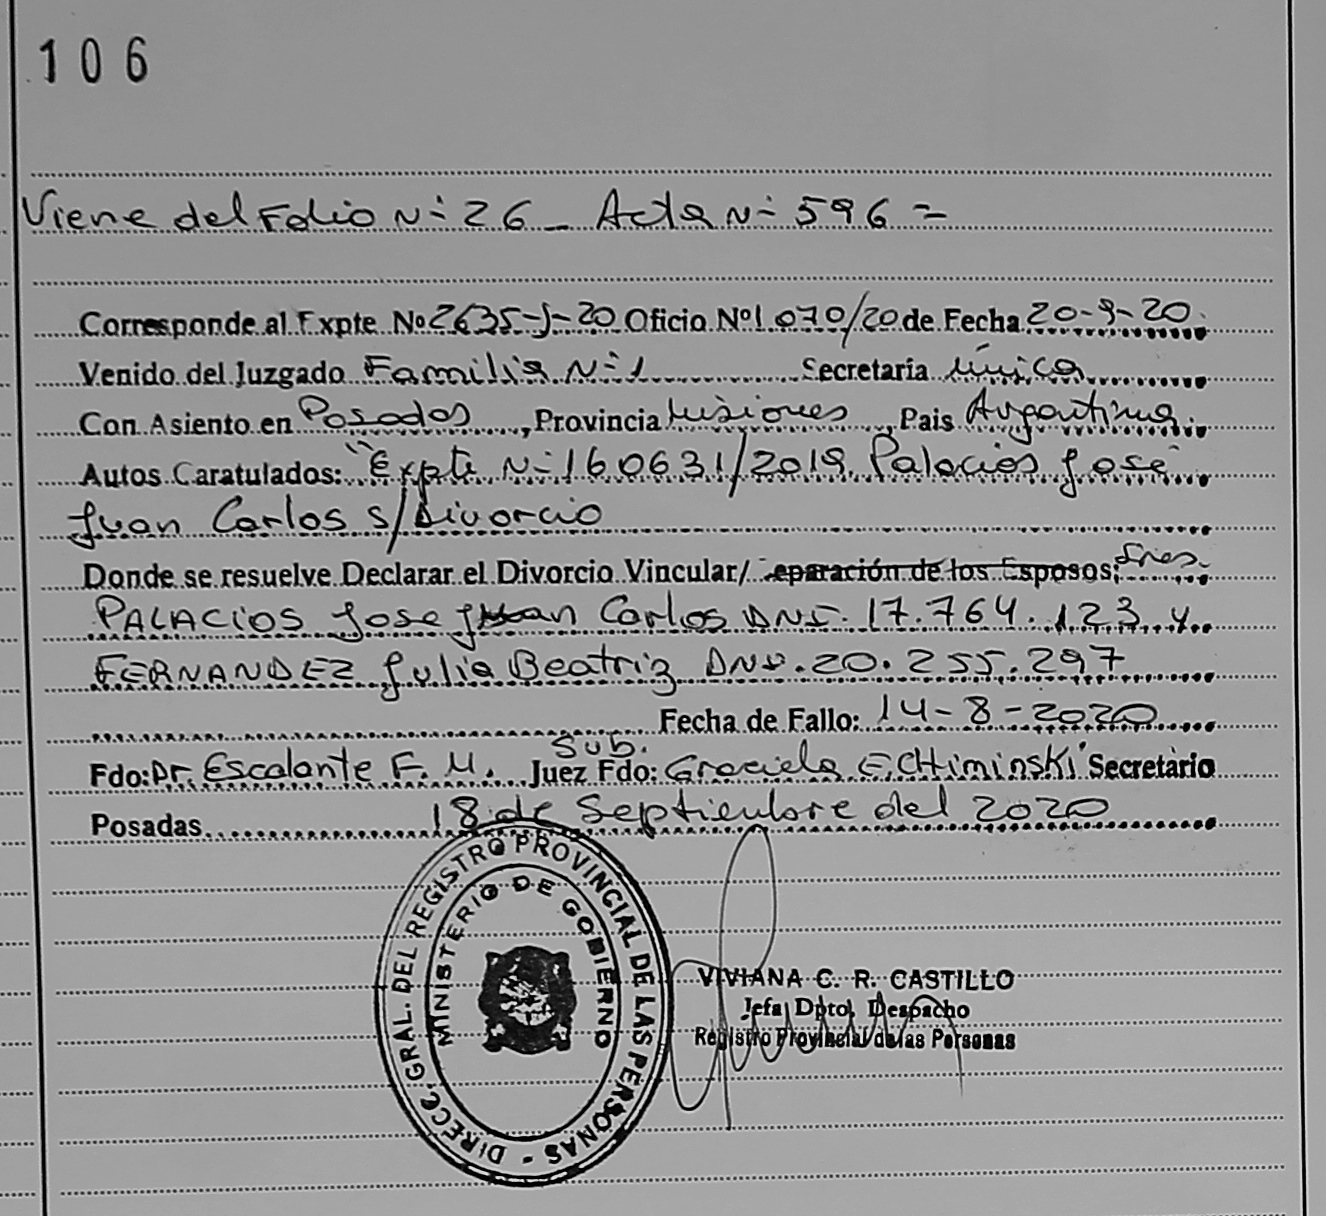 106
Viene del Folio N- 26 - Acta N- 596 =
Corresponde al Expte Nº 2635-J-20 Oficio Nº 1.070/20 de Fecha 20-9-20.
Venido del Juzgado Familia N-1 Secretaría única
Con Asiento en Posadas, Provincia Misiones, Pais Argentina.
Autos Caratulados: "Expte N- 160631/2019. Palacios Jose
Juan Carlos s/Divorcio
Donde se resuelve Declarar el Divorcio Vincular/ Separación de los Esposos; Sres.
PALACIOS Jose Juan Carlos DNI. 17.764.123 y
FERNANDEZ Julia Beatriz DNI. 20.255.297
Fecha de Fallo: 14-8-2020
Fdo: Dr. Escalante F. M. Sub. Juez Fdo: Graciela E. CHiminsKi Secretario
Posadas 18 de Septiembre del 2020
DIRECC. GRAL. DEL REGISTRO PROVINCIAL DE LAS PERSONAS -
MINISTERIO DE GOBIERNO
VIVIANA C. R. CASTILLO
Jefa Dpto. Despacho
Registro Provincial de las Personas